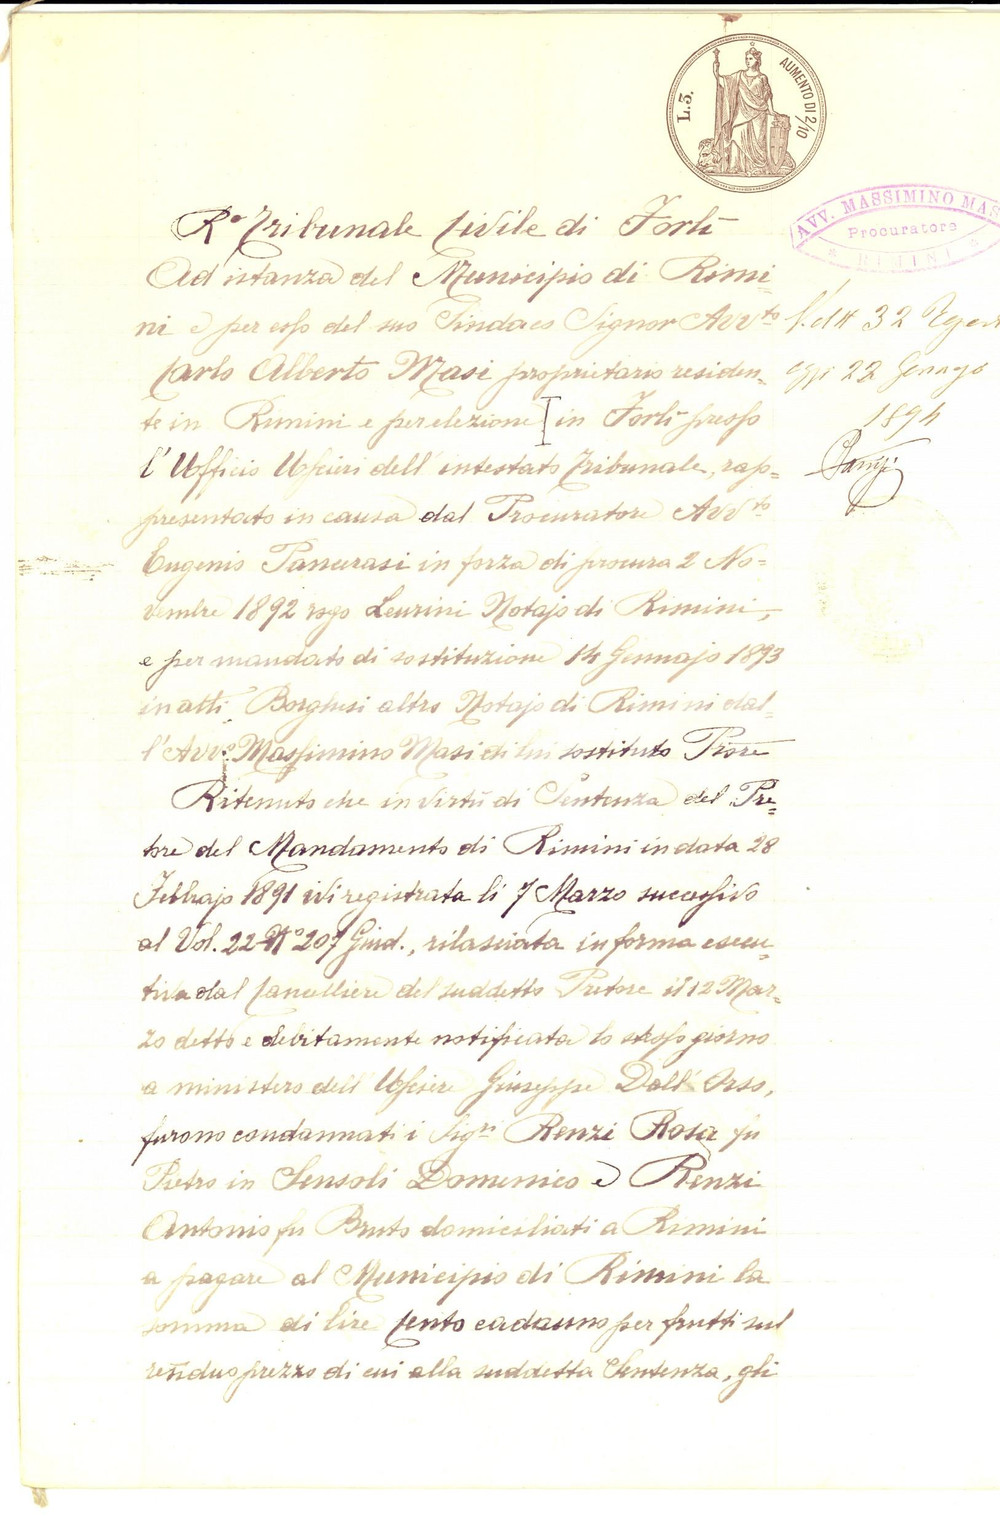 L. 3.
AUMENTO DI 2/10
AVV. MASSIMINO MAS
Procuratore
RIMINI
Ro Tribunale Civile di Forlì
Ad istanza del Municipio di Rimi=
ni e per esso del suo Sindaco Signor Avvto
Carlo Alberto Masi proprietario residen=
te in Rimini e per elezione in Forlì presso
l'Ufficio Uscieri dell'intestato Tribunale, rap=
presentato in causa dal Procuratore Avvto
Eugenio Pancrasi in forza di procura 2 No=
vembre 1892 rogo Leurini Notajo di Rimini,
e per mandato di sostituzione 14 Gennajo 1893
in atti Borghesi altro Notajo di Rimini dal=
l'Avvo Massimino Masi di lui sostituto Prore
Ritenuto che in virtù di Sentenza del Pre=
tore del Mandamento di Rimini in data 28
Febbrajo 1891 ivi registrata li 7 Marzo successivo
al Vol. 22 No 207 Giud., rilasciata in forma esecu=
tiva dal Cancelliere del suddetto Pretore il 12 Mar=
zo detto e debitamente notificata lo stesso giorno
a ministero dell'Usciere Giuseppe Dall'Orso,
furono condannati i Sigri Renzi Rosa fu
Pietro in Sensoli Domenico e Renzi
Antonio fu Bruto domiciliati a Rimini
a pagare al Municipio di Rimini la
somma di lire Cento cadauno per frutti sul
residuo prezzo di cui alla suddetta Sentenza, gli
32
oggi 22 Gennajo
1894